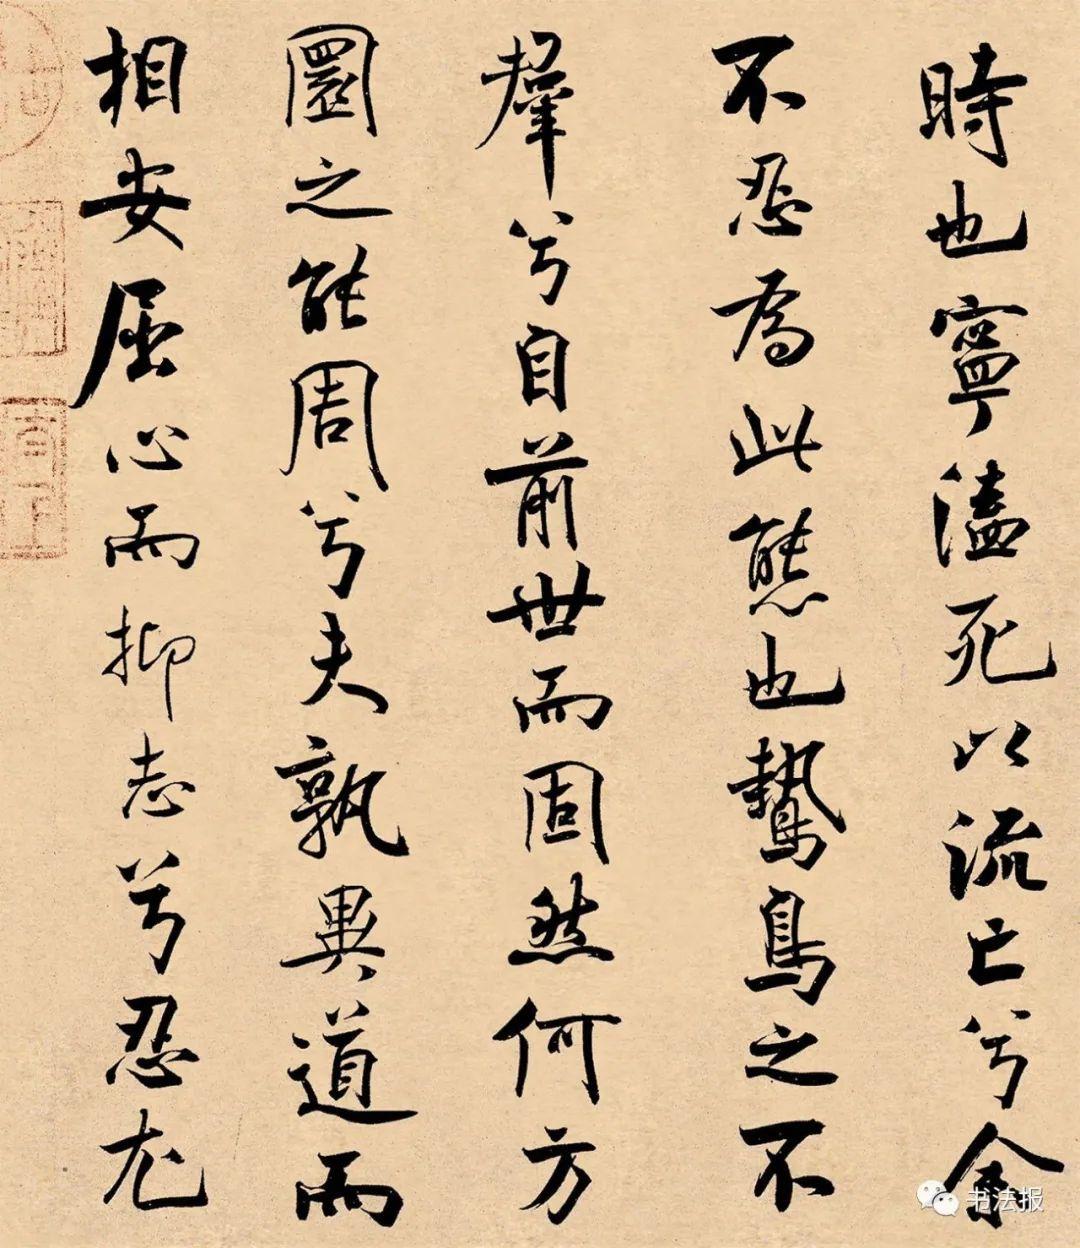 時也寧溘死以流亡兮余
不忍為此態也鷙鳥之不
羣兮自前世而固然何方
圜之能周兮夫孰異道而
相安屈心而抑志兮忍尤
书法报